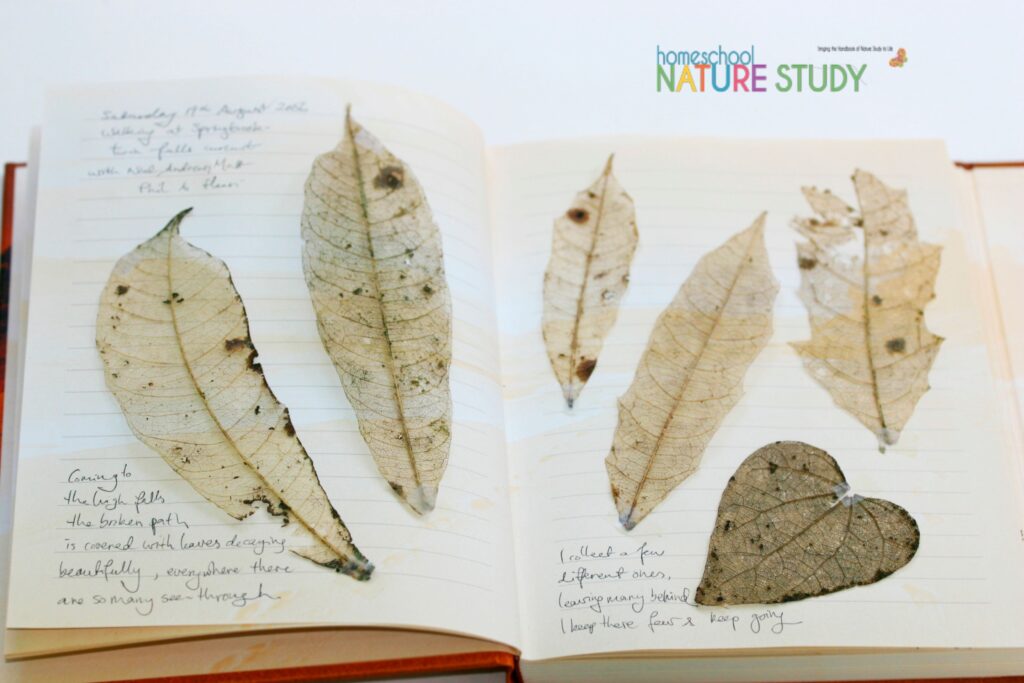 homeschool
bringing the Handbook of Nature Study to Life
NATURE STUDY
Saturday 19th August 2006
walking at Springbrook
twin falls circuit
with Andrew, Matt
Phil & Fleur
Coming to
the high falls
the broken path
is covered with leaves decaying
beautifully, everywhere there
are so many see through
I collect a few
different ones,
leaving many behind
I keep these few & keep going